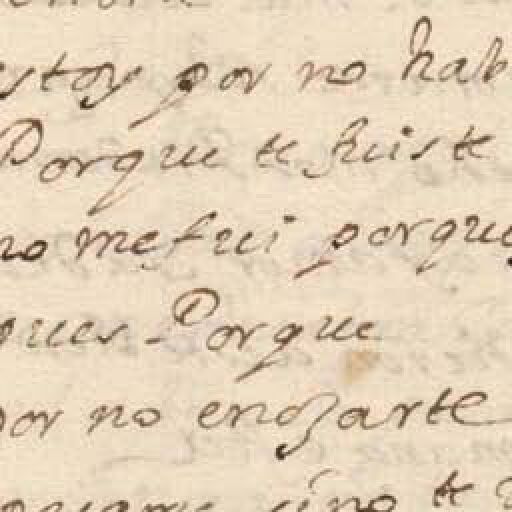 estoy por no hab
Porque te fuiste
no me fui porque
pues - Porque
por no enojarte
sino te